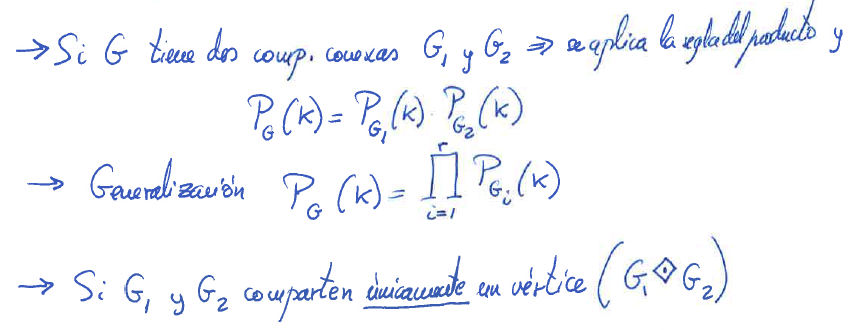 → Si G tiene dos comp. conexas G₁ y G₂ ⇒ se aplica la regla del producto y
P_G(k) = P_G₁(k) · P_G₂(k)
→ Generalización P_G(k) = ∏_{i=1}^{r} P_{G_i}(k)
→ Si G₁ y G₂ comparten únicamente un vértice (G₁ ⟐ G₂)